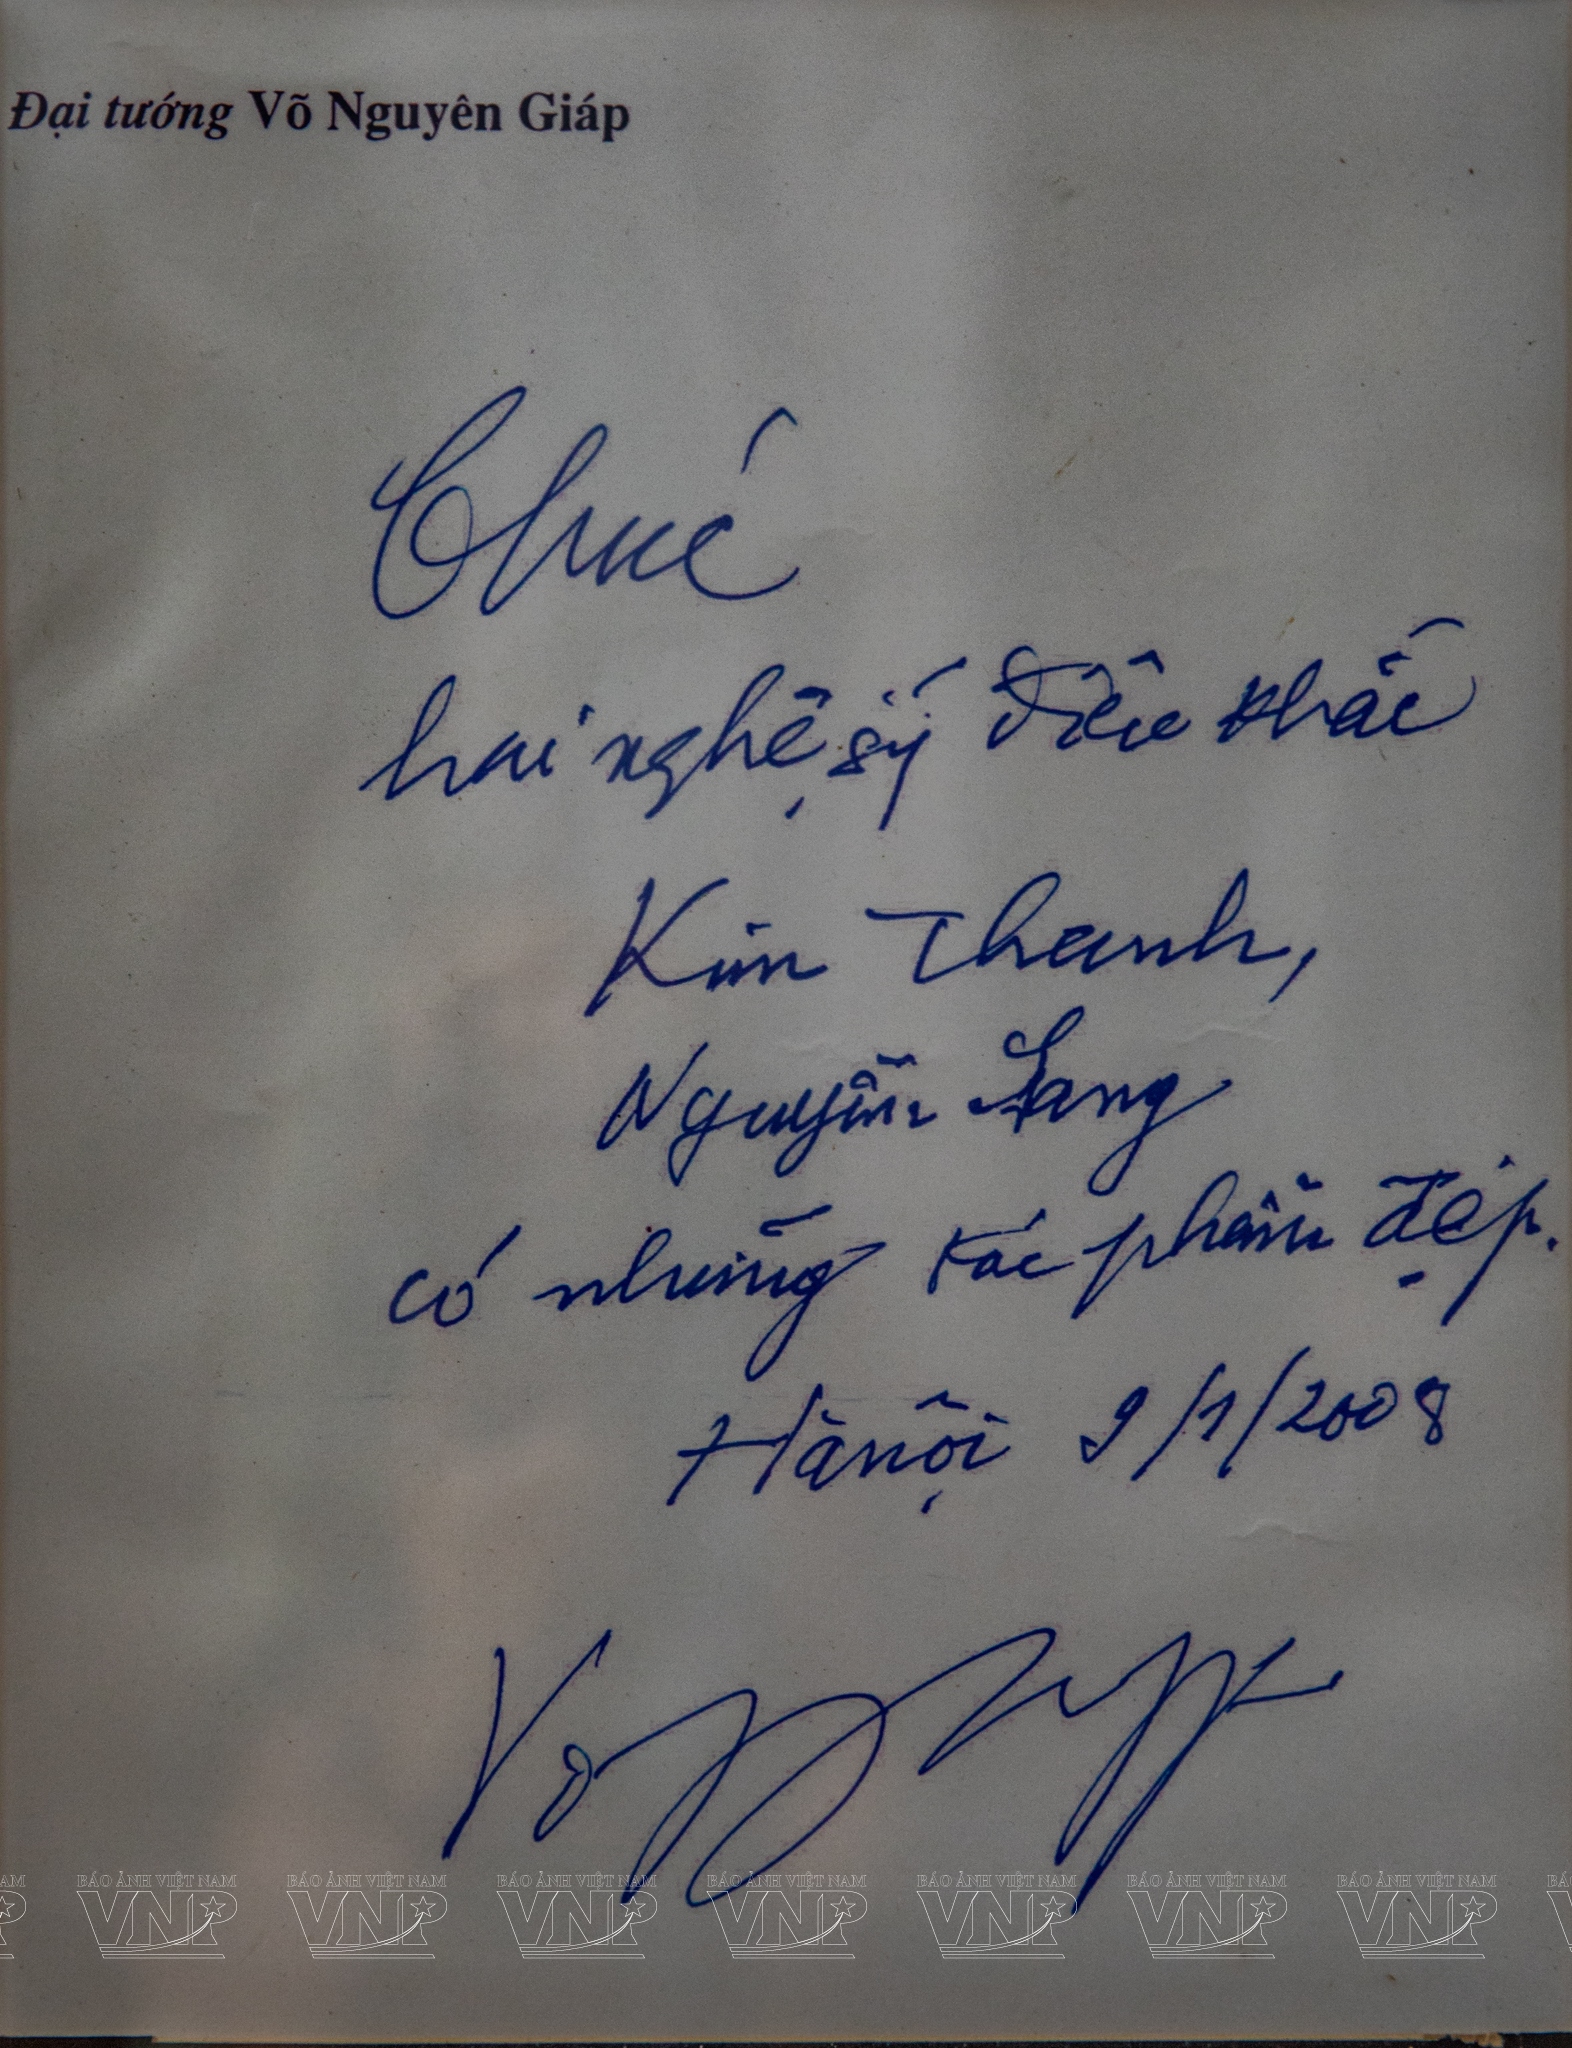 Đại tướng Võ Nguyên Giáp
Chúc
hai nghệ sỹ điêu khắc
Kim Thanh,
Nguyễn Lang
có những tác phẩm đẹp.
Hà nội 9/1/2008
Võ
BÁO ẢNH VIỆT NAM BÁO ẢNH VIỆT NAM BÁO ẢNH VIỆT NAM BÁO ẢNH VIỆT NAM BÁO ẢNH VIỆT NAM BÁO ẢNH VIỆT NAM BÁO ẢNH VIỆT NAM
VNP VNP VNP VNP VNP VNP VNP